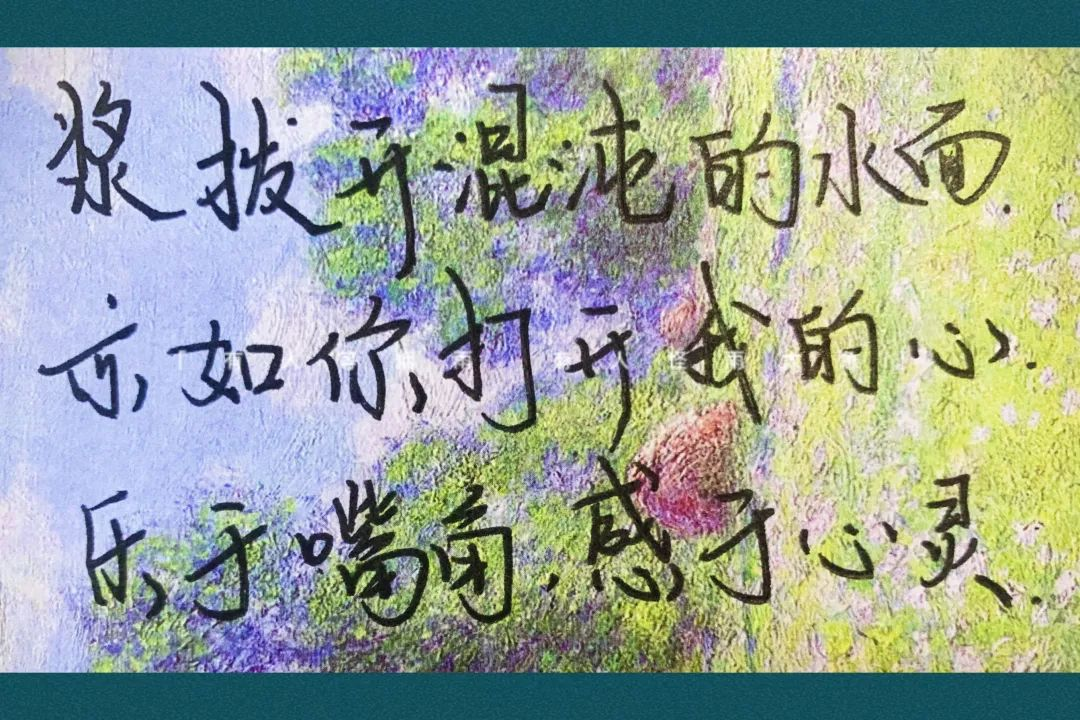 浆拨开混沌的水面.
亦如你打开我的心.
乐于嘴角.感于心灵.